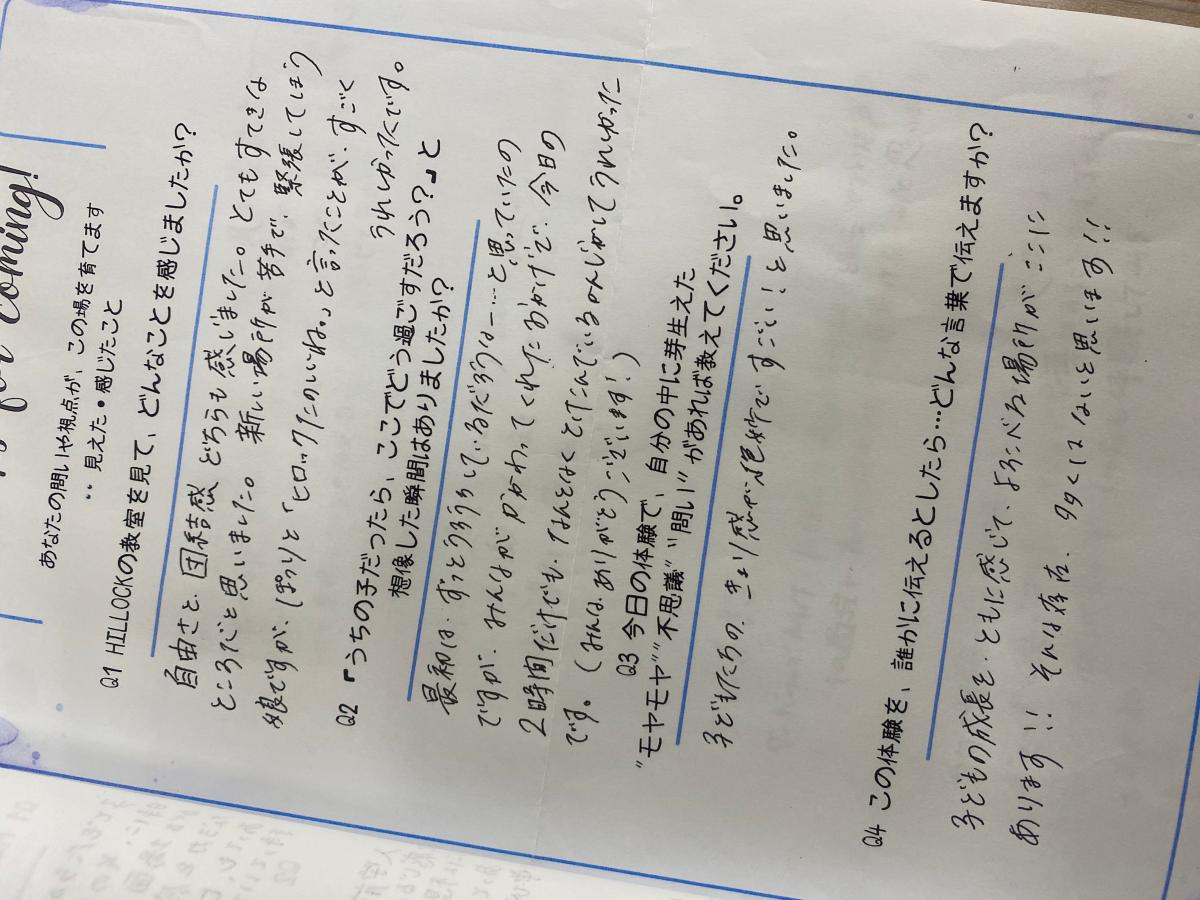 for coming!
あなたの問いや視点が、この場を育てます
：見えた・感じたこと
Q1 HILLOCKの教室を見て、どんなことを感じましたか？
自由さと、団結感 どちらも感じました。とてもすてきな
ところだと思いました。新しい場所が苦手で、緊張してしまう
娘ですが、ぽつりと「ヒロックたのしいね。」と言ったことが、すごく
うれしかったです。
Q2 「うちの子だったら、ここでどう過ごすだろう？」と
想像した瞬間はありましたか？
最初は、ずっとうろうろしているだろうなー…と思っていたの
ですが、みんながかかわってくれたおかげで、今日の
2時間だけでも、なんとなくとけこんでいるかんじがしてうれしかった
です。（みんな、ありがとうございます！）
Q3 今日の体験で、自分の中に芽生えた
“モヤモヤ”“不思議”“問い”があれば教えてください。
子どもたちの、きょり感が絶妙ですごい！と思いました。
Q4 この体験を、誰かに伝えるとしたら…どんな言葉で伝えますか？
子どもの成長を、ともに感じて、よろこべる場所が、ここに
あります!! そんな存在、多くはないと思います!!